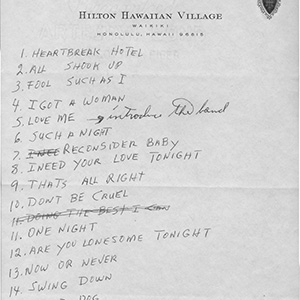 HILTON HAWAIIAN VILLAGE
WAIKIKI
HONOLULU, HAWAII 96815
1. HEARTBREAK HOTEL
2. ALL SHOOK UP
3. FOOL SUCH AS I
4. I GOT A WOMAN
5. LOVE ME introduce the band
6. SUCH A NIGHT
7. I NEE RECONSIDER BABY
8. I NEED YOUR LOVE TONIGHT
9. THATS ALL RIGHT
10. DONT BE CRUEL
11. DOING THE BEST I CAN
11. ONE NIGHT
12. ARE YOU LONESOME TONIGHT
13. NOW OR NEVER
14. SWING DOWN
DOG